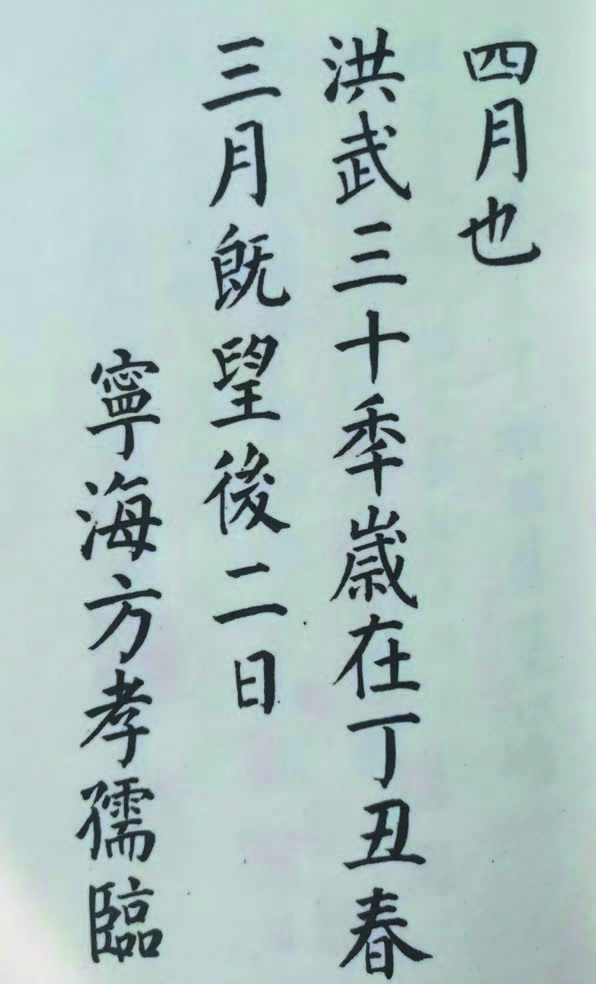 四月也
洪武三十季歲在丁丑春
三月既望後二日
寧海方孝孺臨